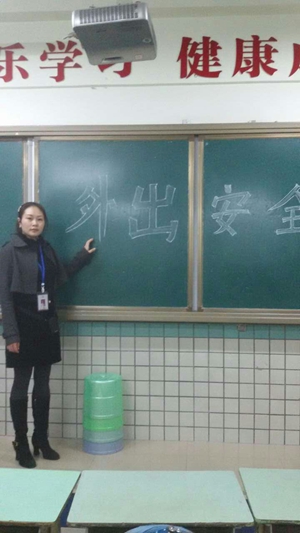 乐学习 健康成
外出安全